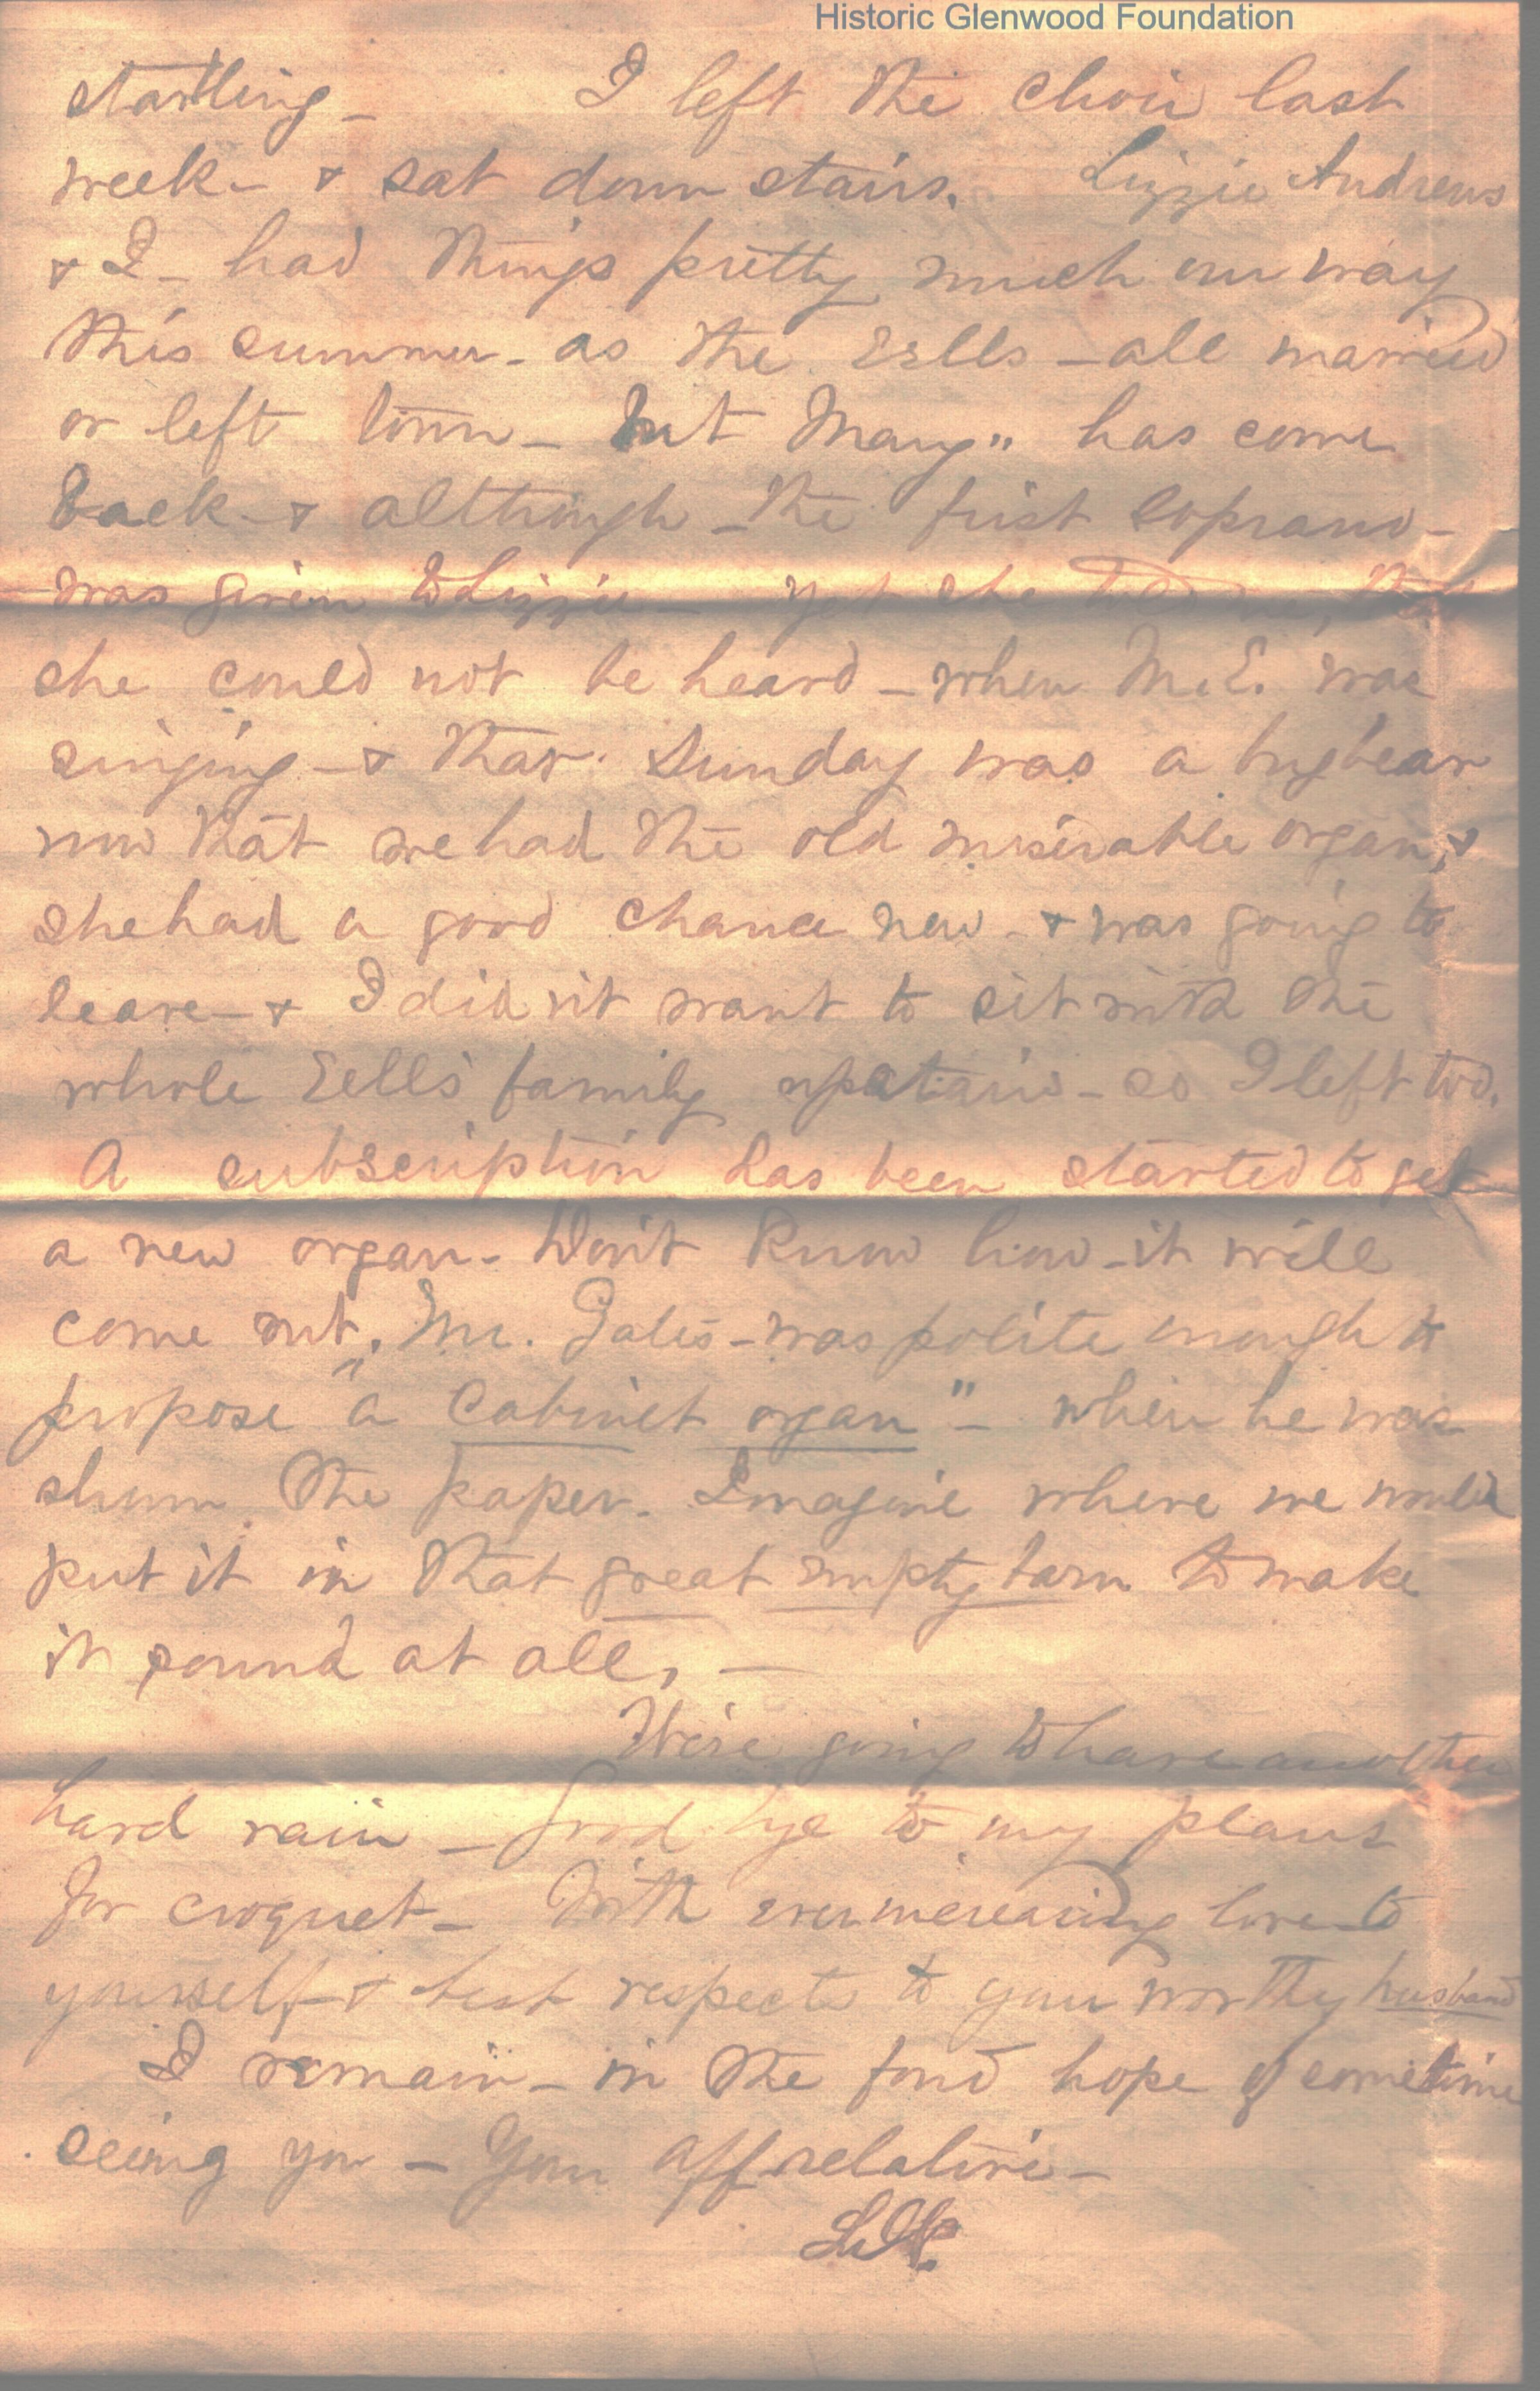 Historic Glenwood Foundation
startling – I left the choir last
week – & sat down stairs. Lizzie Andrews
& I – had things pretty much our way
this summer – as the Eells – all married
or left town – but Mary" has come
back – & although – the first soprano –
was given to Lizzie – yet she told me, that
she could not be heard – when M.E. was
singing – & that Sunday was a bugbear
now that we had the old miserable organ, &
she had a good chance now – & was going to
leave – & I didn't want to sit with the
whole Eells' family upstairs – so I left too.
A subscription has been started to get
a new organ – Don't know how – it will
come out. Mr. Gates – was polite enough to
propose "a Cabinet organ" – when he was
shown the paper. Imagine where we would
put it in that great empty barn to make
it sound at all. –
We're going to have another
hard rain – Good bye to my plans
for croquet – With ever increasing love to
yourself – & best respects to your worthy husband
I remain – in the fond hope of sometime
seeing you – Your aff. relative –